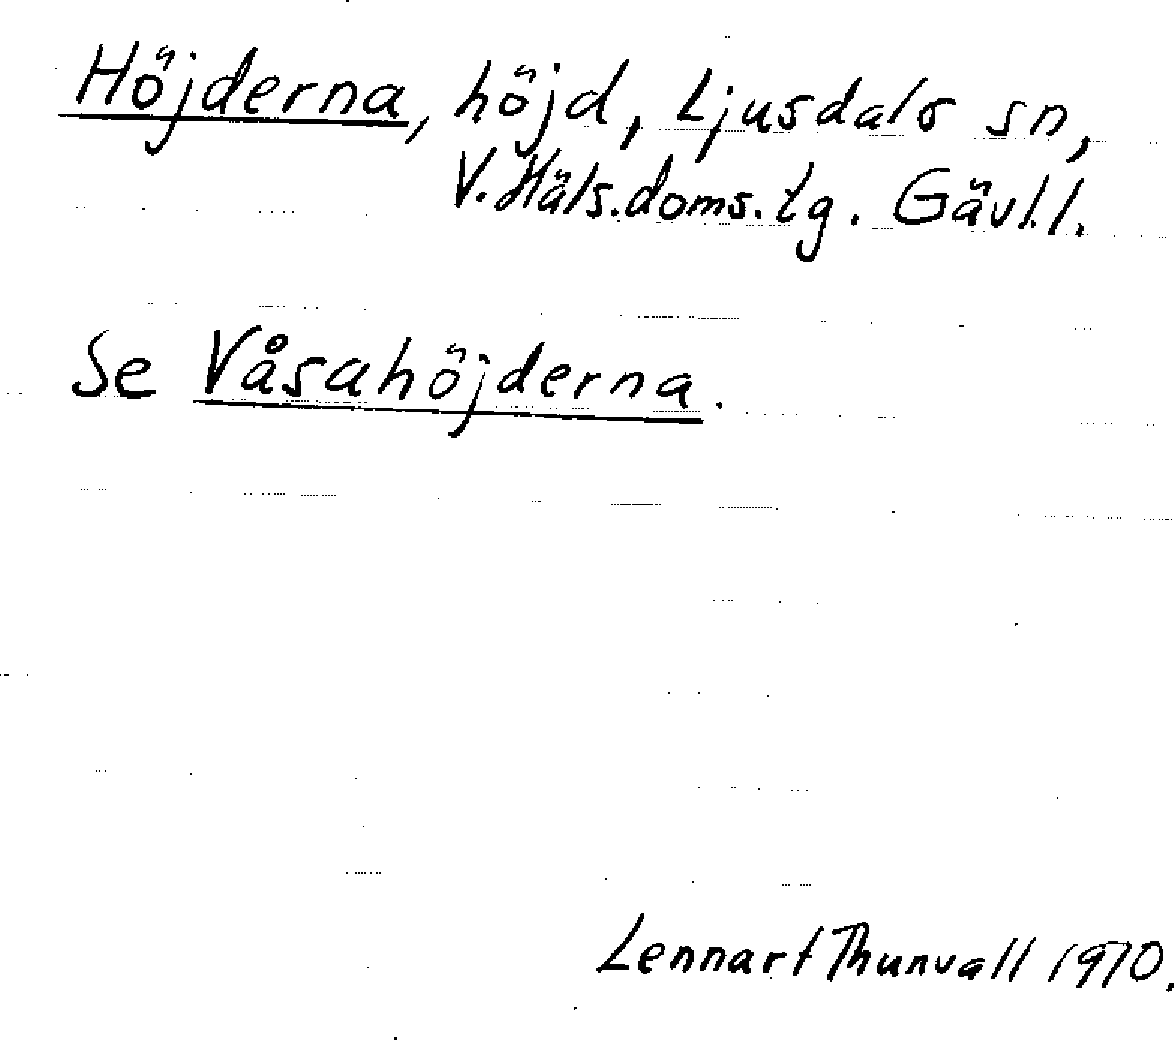 Höjderna, höjd, Ljusdals sn,
V. Häls. doms. tg. Gävl. l.
Se Våsahöjderna.
Lennart Thunvall 1970.